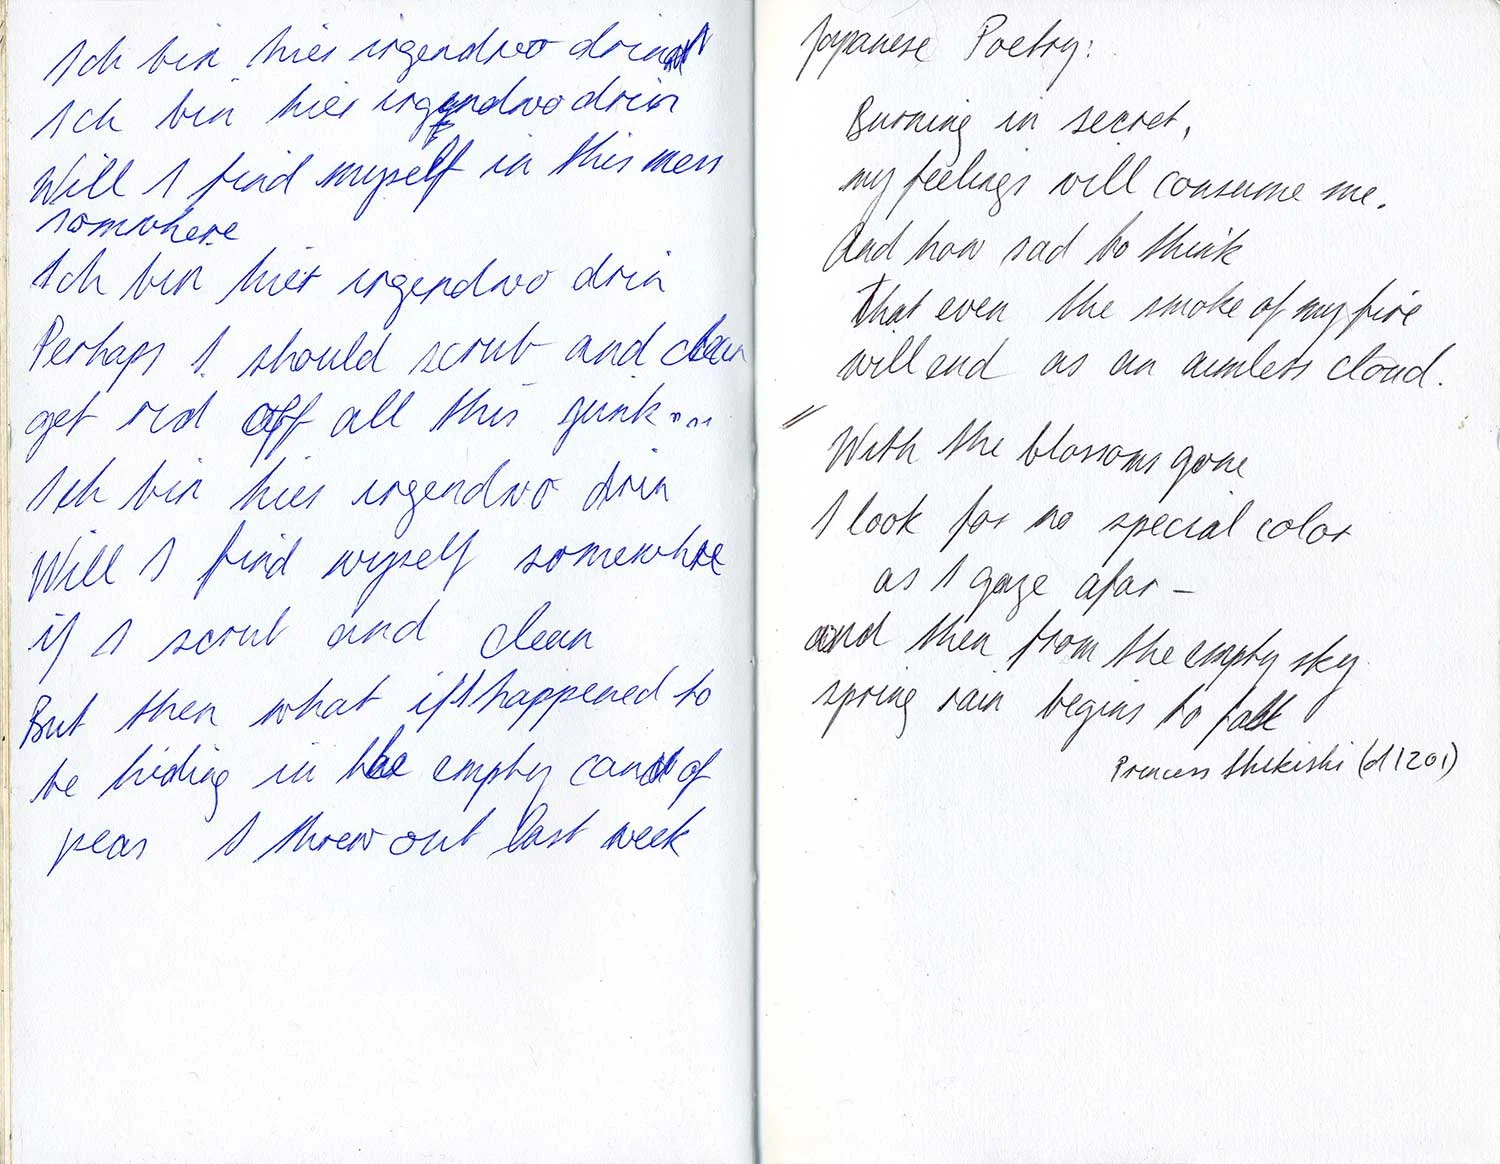 Ich bin hier irgendwo drin
Ich bin hier irgendwo drin
Will I find myself in this mess
somwhere
Ich bin hier irgendwo drin
Perhaps I should scrub and clean
get rid off all this junk...
Ich bin hier irgendwo drin
Will I find myself somewhre
if I scrub and clean
But then what if I happened to
be hiding in the empty can of
peas I threw out last week
Japanese Poetry:
Burning in secret,
my feelings will consume me.
And how sad to think
that even the smoke of my fire
will end as an aimless cloud.
With the blossoms gone
I look for no special color
as I gaze afar –
and then from the empty sky
spring rain begins to fall
Princess Shikishi (d 1201)